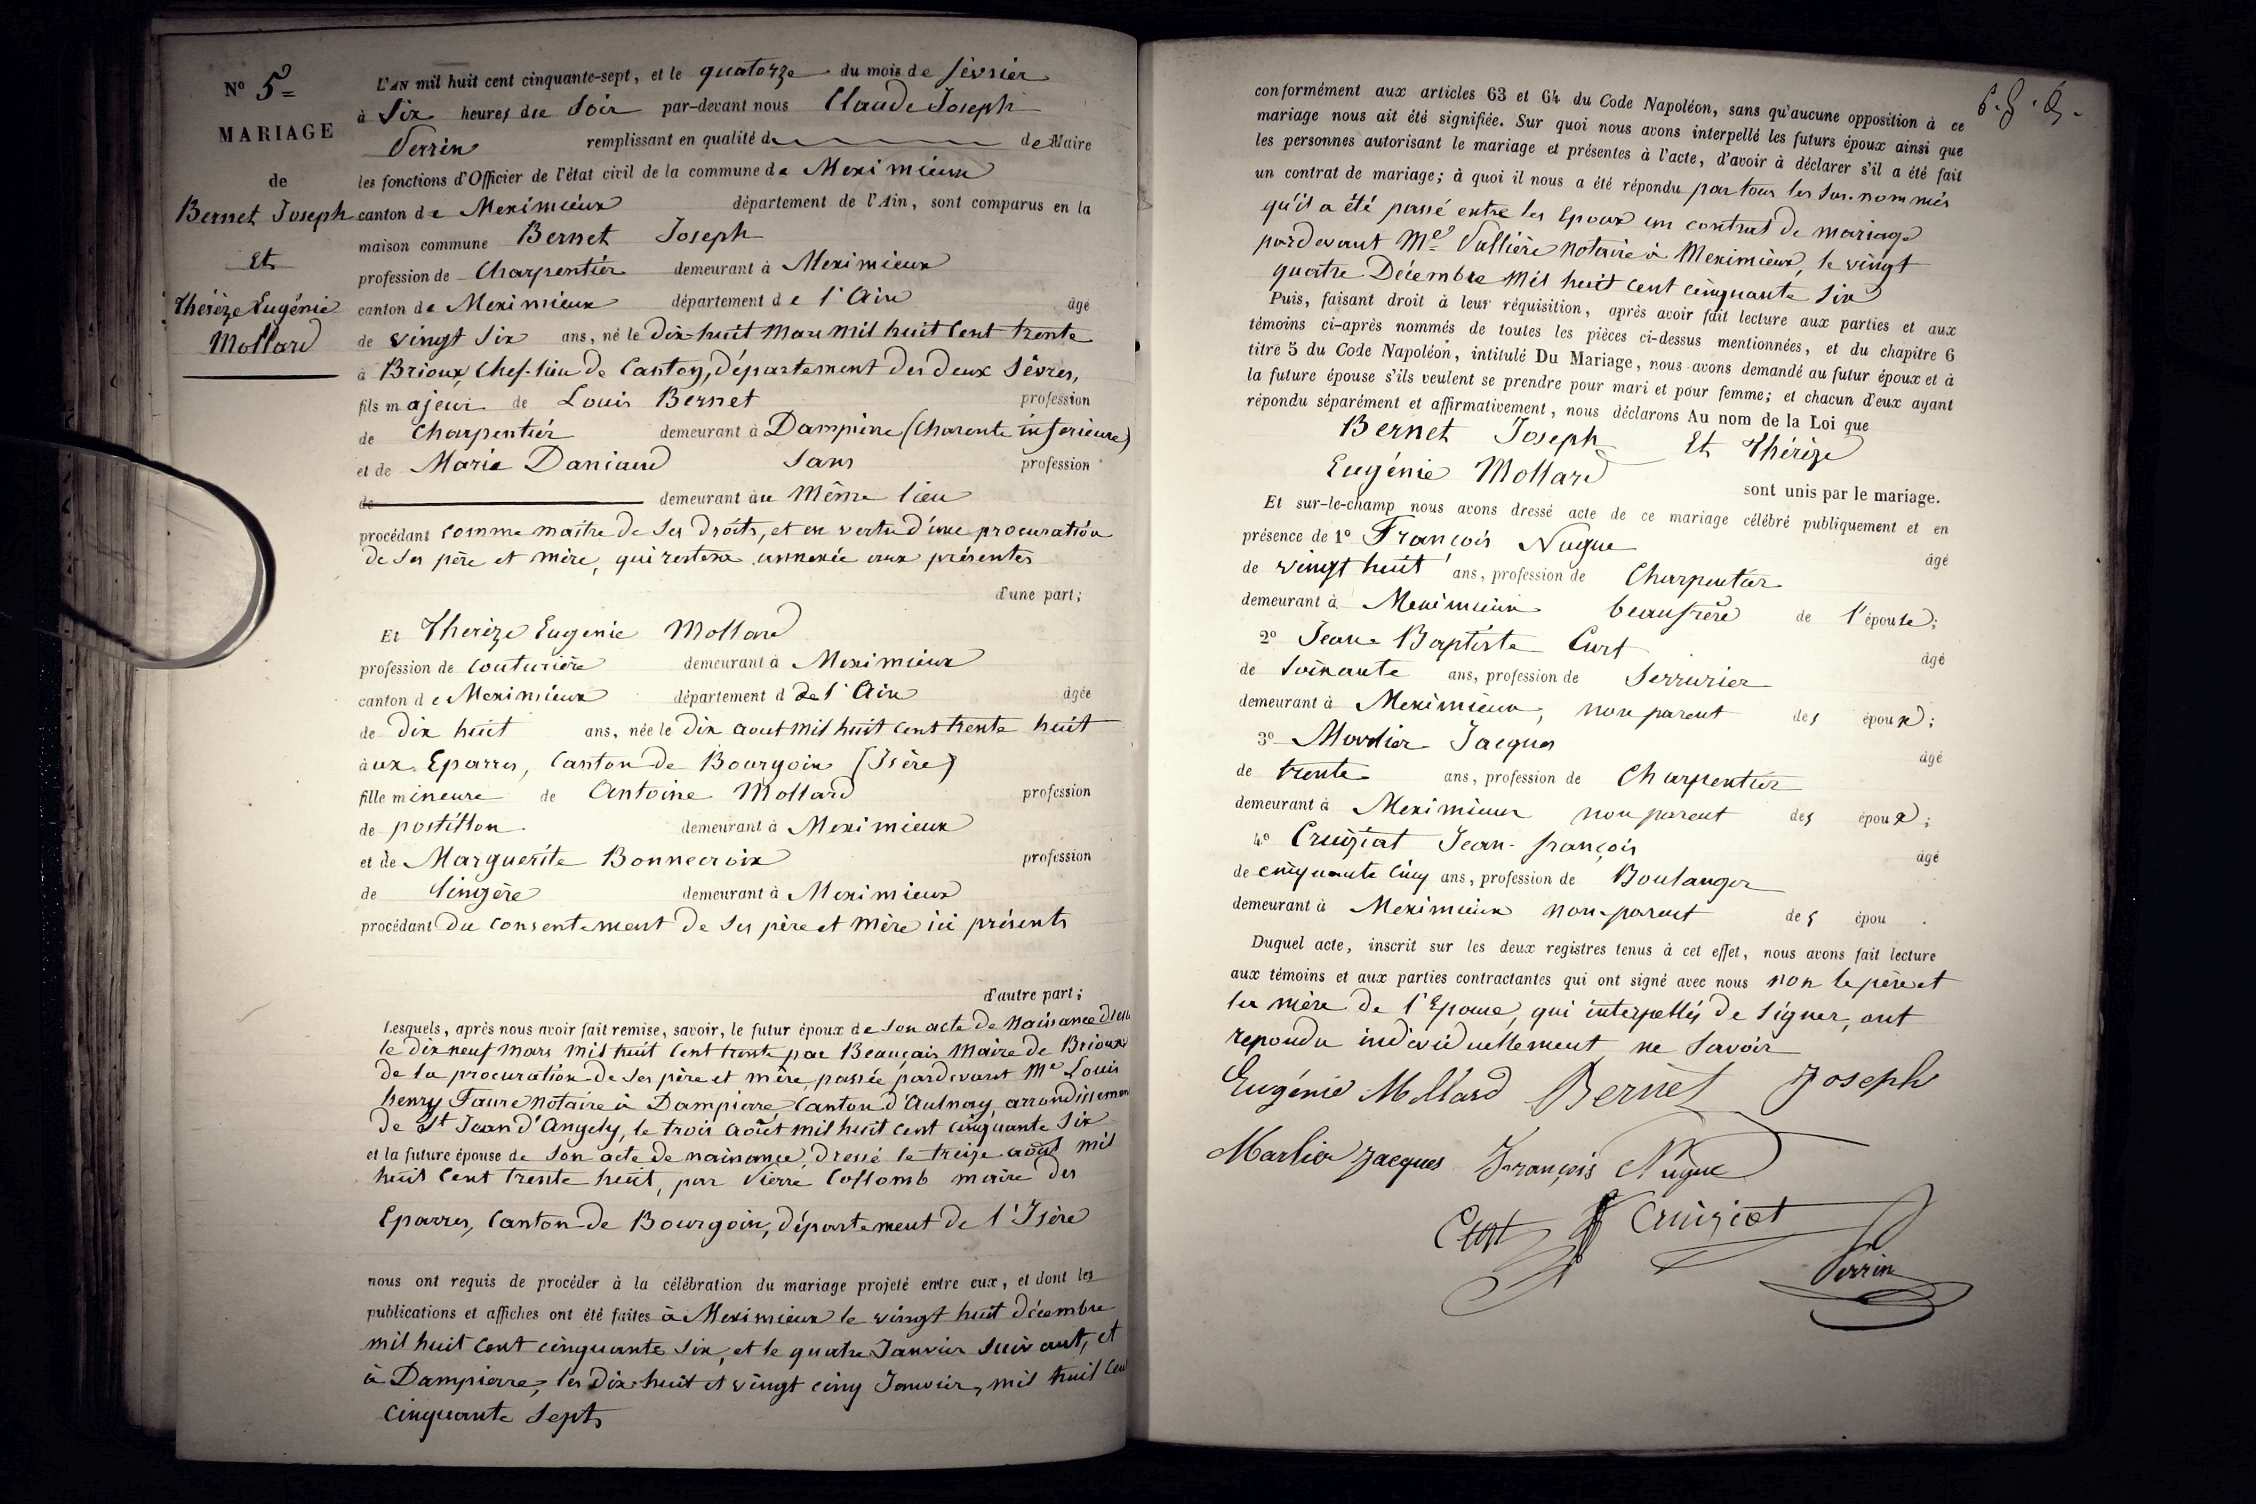 N° 5=
MARIAGE
de
Bernet Joseph
Et
Thérèze Eugénie
Mollard
L'AN mil huit cent cinquante-sept, et le quatorze du mois de février
à Six heures du Soir par-devant nous Claude Joseph
Perrin remplissant en qualité de de Maire
les fonctions d'Officier de l'état civil de la commune de Meximieux
canton de Meximieux département de l'Ain, sont comparus en la
maison commune Bernet Joseph
profession de Charpentier demeurant à Meximieux
canton de Meximieux département de l'Ain âgé
de vingt Six ans, né le Dix-huit Mars Mil huit Cent trente
à Brioux, Chef-lieu de Canton, département des deux Sèvres,
fils majeur de Louis Bernet profession
de Charpentier demeurant à Dampierre (Charente inférieure)
et de Marie Daniaud Sans profession
de demeurant au Même lieu
procédant comme maître de Ses droits, et en vertu d'une procuration
de Ses père et mère, qui restera annexée aux présentes
d'une part;
Et Thérèze Eugenie Mollard
profession de Couturière demeurant à Meximieux
canton de Meximieux département d de l'Ain âgée
de Dix huit ans, née le Dix aout Mil huit Cent trente huit
aux Eparres, Canton de Bourgoin (Isère)
fille mineure de Antoine Mollard profession
de postillon demeurant à Meximieux
et de Marguerite Bonnecroix profession
de lingère demeurant à Meximieux
procédant du Consentement de Ses père et Mère ici présents
d'autre part;
Lesquels, après nous avoir fait remise, savoir, le futur époux de Son acte de Naissance dressé
le dix neuf Mars Mil huit Cent trente par Beauçais Maire de Brioux
de la procuration de Ses père et mère, passée pardevant Me Louis
henry Faure Notaire à Dampierre, Canton d'Aulnay, arrondissement
de St Jean d'Angely, le trois août mil huit Cent Cinquante Six
et la future épouse de Son acte de naissance, dressé le treize août mil
huit Cent trente huit, par Pierre Collomb maire des
Eparres, Canton de Bourgoin, département de l'Isère
nous ont requis de procéder à la célébration du mariage projeté entre eux, et dont les
publications et affiches ont été faites à Meximieux le vingt huit décembre
mil huit Cent cinquante Six, et le quatre Janvier Suivant, et
à Dampierre, les Dix-huit et vingt cinq Janvier, mil huit Cent
Cinquante Sept,
conformément aux articles 63 et 64 du Code Napoléon, sans qu'aucune opposition à ce
mariage nous ait été signifiée. Sur quoi nous avons interpellé les futurs époux ainsi que
les personnes autorisant le mariage et présentes à l'acte, d'avoir à déclarer s'il a été fait
un contrat de mariage; à quoi il nous a été répondu par tous les Sus-nommés
qu'il a été passé entre les Epoux un contrat de mariage
pardevant Me Vallière Notaire à Meximieux, le vingt
quatre Décembre Mil huit Cent Cinquante Six
Puis, faisant droit à leur réquisition, après avoir fait lecture aux parties et aux
témoins ci-après nommés de toutes les pièces ci-dessus mentionnées, et du chapitre 6
titre 5 du Code Napoléon, intitulé Du Mariage, nous avons demandé au futur époux et à
la future épouse s'ils veulent se prendre pour mari et pour femme; et chacun d'eux ayant
répondu séparément et affirmativement, nous déclarons Au nom de la Loi que
Bernet Joseph Et Thérèze
Eugénie Mollard
sont unis par le mariage.
Et sur-le-champ nous avons dressé acte de ce mariage célébré publiquement et en
présence de 1° François Nugue âgé
de vingt huit ans, profession de Charpentier
demeurant à Meximieux beaufrère de l'épouse;
2° Jean Baptiste Curt âgé
de Soixante ans, profession de Serrurier
demeurant à Meximieux, non parent des époux;
3° Jacques âgé
de trente ans, profession de Charpentier
demeurant à Meximieux non parent des époux;
4° Cruiziat Jean-françois âgé
de cinquante Cinq ans, profession de Boulanger
demeurant à Meximieux non-parent des épou .
Duquel acte, inscrit sur les deux registres tenus à cet effet, nous avons fait lecture
aux témoins et aux parties contractantes qui ont signé avec nous non le père et
la mère de l'Epouse, qui interpellés de Signer, ont
repondu individuellement ne Savoir
Eugénie Mollard Bernet Joseph
Marlier Jacques François Nugue
Curt Cruiziat
Perrin